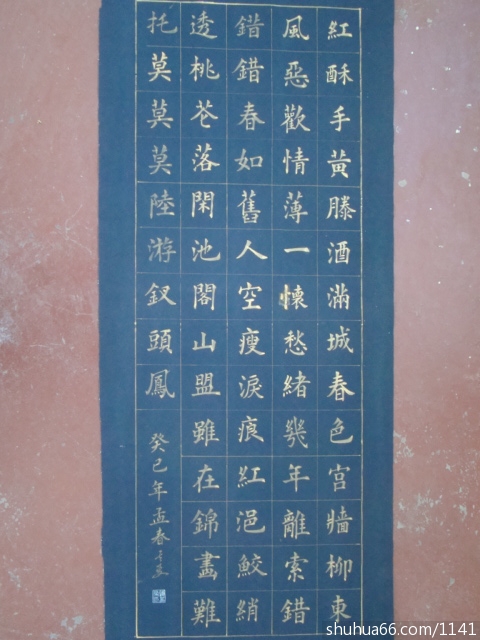 紅酥手黃滕酒滿城春色宮牆柳東
風惡歡情薄一懷愁緒幾年離索錯
錯錯春如舊人空瘦淚痕紅浥鮫綃
透桃花落閑池閣山盟雖在錦畫難
托莫莫莫陸游釵頭鳳
癸巳年孟春
shuhua66.com/1141